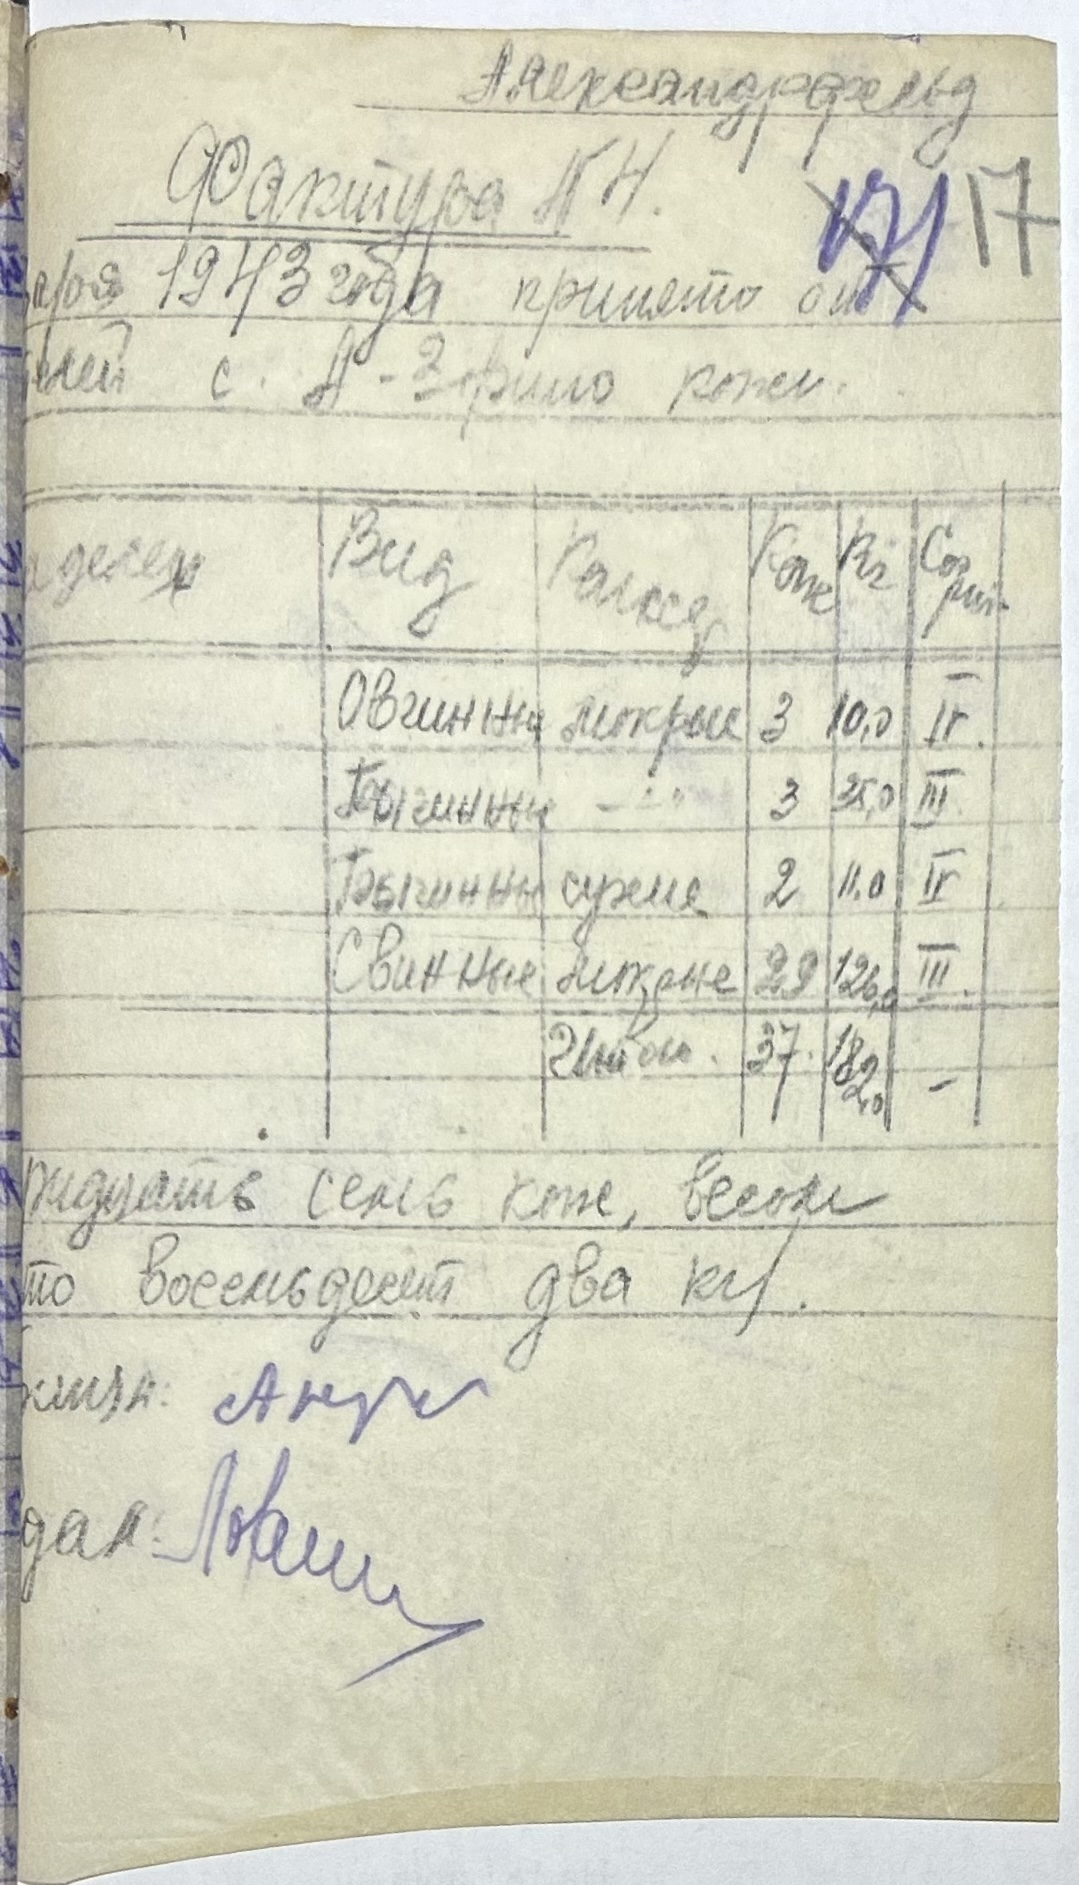 Александрфельд
Фактура № 4.
17 17
аря 1943 года принято от
елей с. А-Здрило кожи.
аделец Вид Кож Кг Сорт
Овчинны мокрые 3 10,0 IV.
Бычинны —〃— 3 35,0 III.
Бычинны сухие 2 11,0 IV
Свинные мокрые 29 126,0 III.
Итого. 37. 182,0 –
ридцать семь кож, весом
то восемьдесят два кг.
дал: